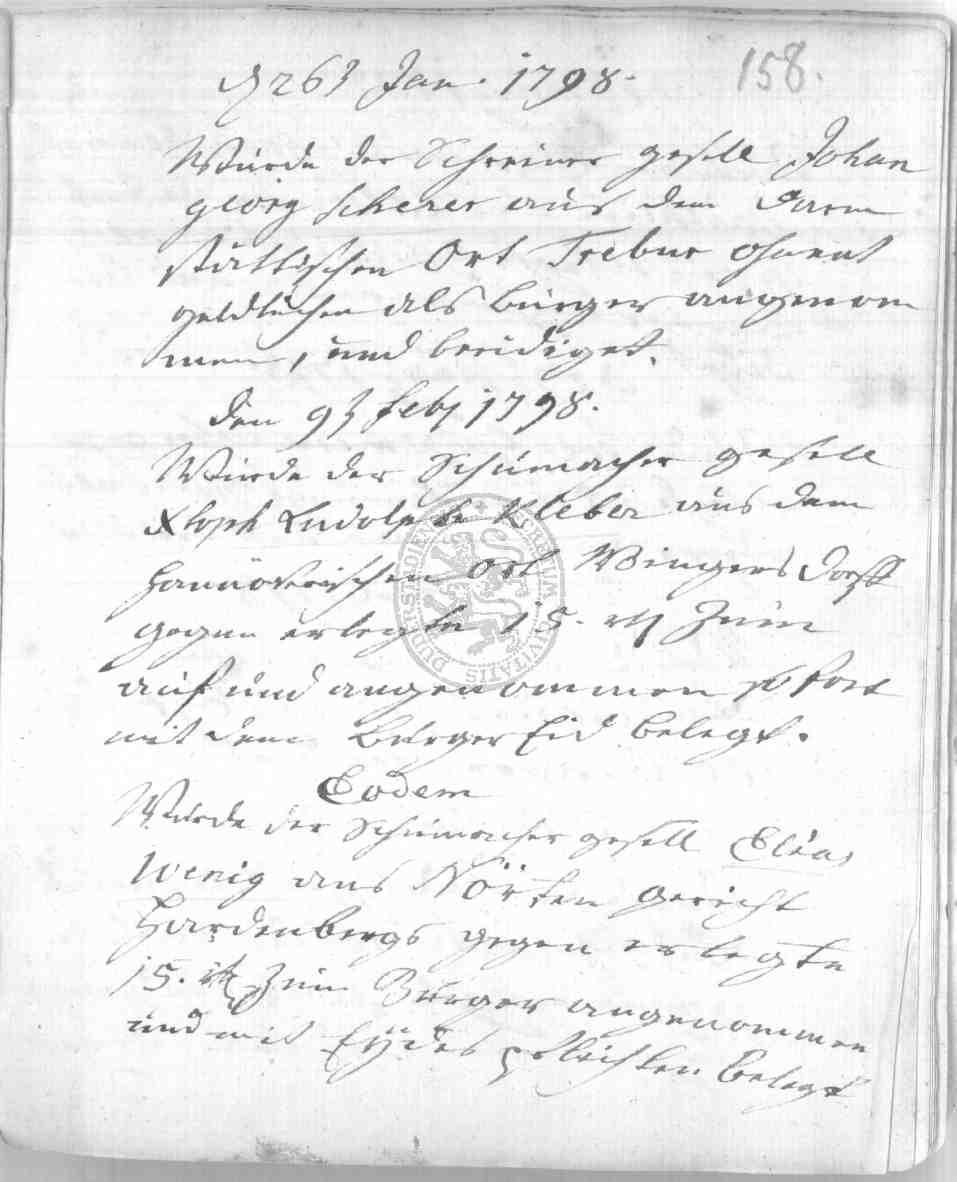 158.
d 26t Jan. 1798.
Wurde der Schreiner gesell Johan
georg Scherer aus dem Darm
stättischen Ort Trebur ohnent
geldlichen als Bürger angenom
men, und beeidiget.
den 9t Feb 1798.
Wurde der Schumacher gesell
Xtoph Ludolph Kleber aus dem
Hannövrischen Ort Wingersdorff
gegen erlegte 15. rtl Zum
auf und angenommen so fort
mit dem Burger Eid belegt.
Eodem
Wurde der Schumacher gesell Elias
Wenig aus Nörten gericht
Hardenbergs gegen erlegte
15. rtl zum Burger angenommen
und mit Eydes pflichten belegt